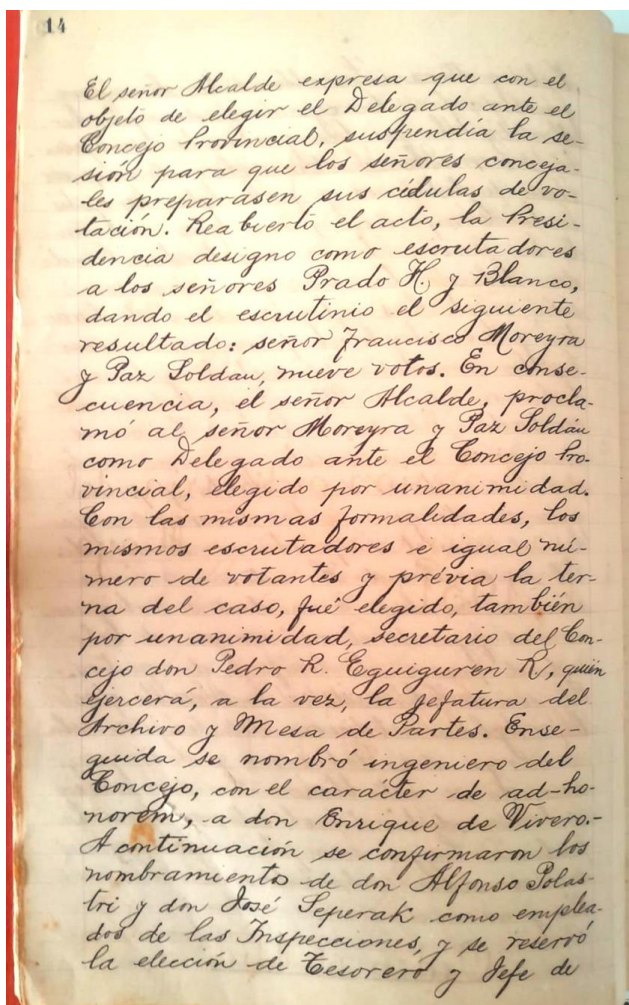 14
El señor Alcalde expresa que con el
objeto de elegir el Delegado ante el
Concejo Provincial, suspendía la se-
sión para que los señores conceja-
les preparasen sus cédulas de vo-
tación. Reabierto el acto, la Presi-
dencia designo como escrutadores
a los señores Prado H. y Blanco,
dando el escrutinio el siguiente
resultado: señor Francisco Moreyra
y Paz Soldan, nueve votos. En conse-
cuencia, el señor Alcalde, procla-
mó al señor Moreyra y Paz Soldán
como Delegado ante el Concejo Pro-
vincial, elegido por unanimidad.
Con las mismas formalidades, los
mismos escrutadores e igual nú-
mero de votantes y prévia la ter-
na del caso, fué elegido, también
por unanimidad, secretario del Con-
cejo don Pedro R. Eguiguren R, quién
ejercerá, a la vez, la jefatura del
Archivo y Mesa de Partes. Ense-
guida se nombró ingeniero del
Concejo, con el carácter de ad-ho-
norem, a don Enrique de Vivero.-
A continuación se confirmaron los
nombramientos de don Alfonso Polas-
tri y don José Seperak como emplea-
dos de las Inspecciones, y se reservó
la elección de Tesorero y Jefe de